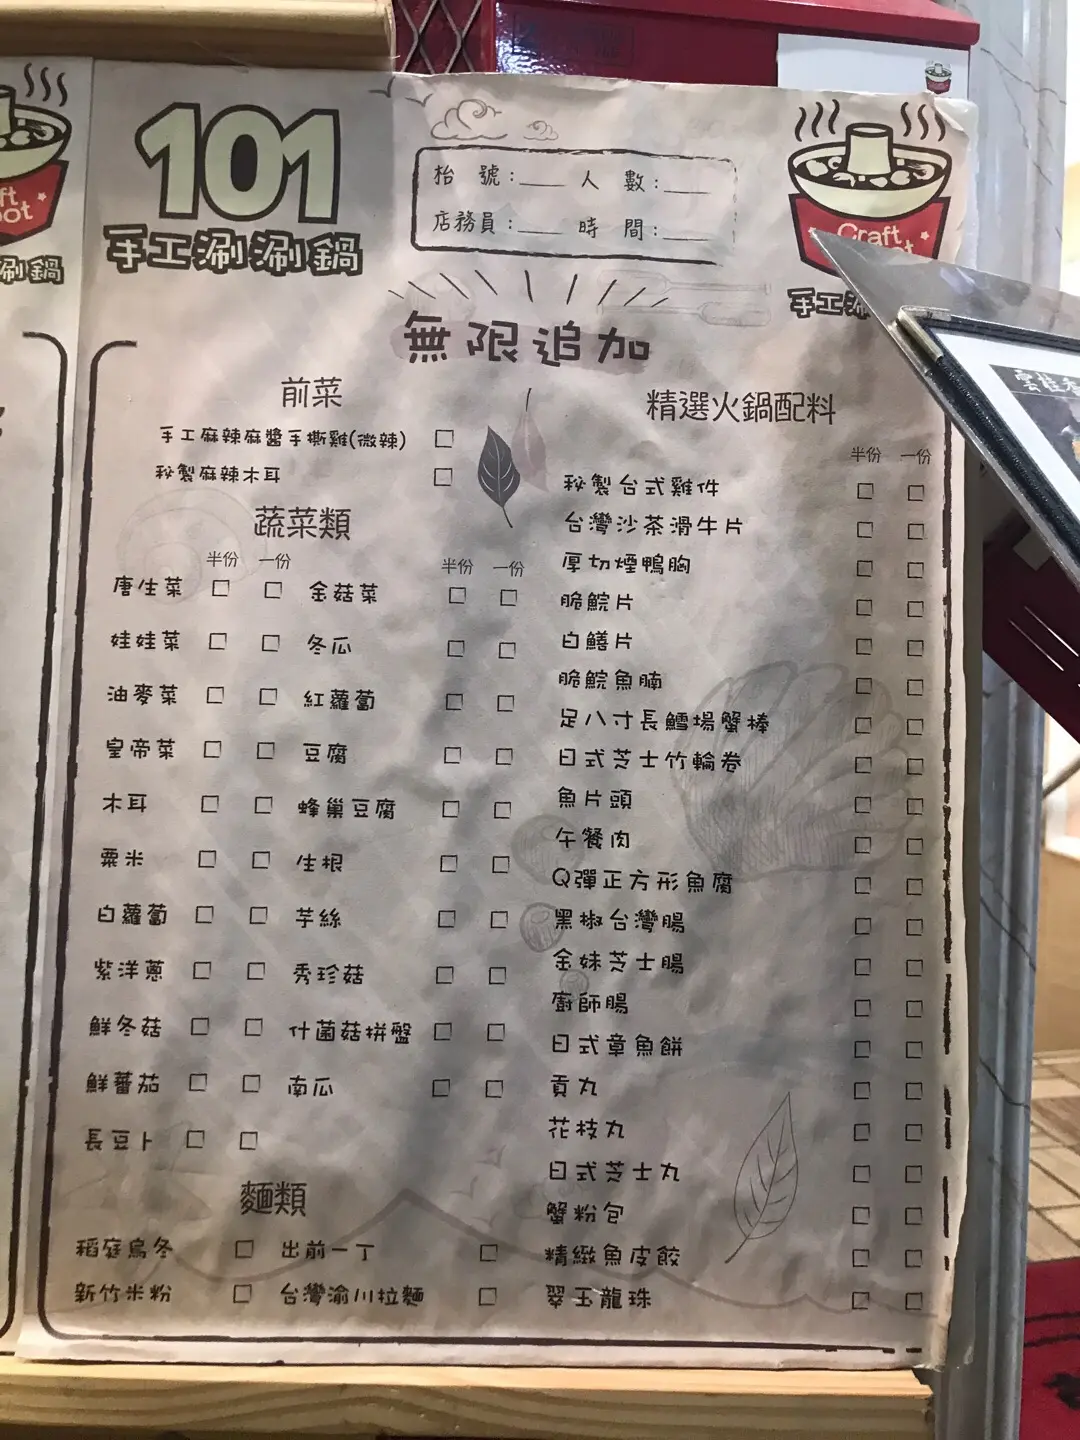 101
手工涮涮鍋
枱 號：___ 人 數：___
店務員：___ 時 間：___
Craft
手工
ft
pot
涮鍋
無限追加
前菜
手工麻辣麻醬手撕雞(微辣) □
秘製麻辣木耳 □
蔬菜類
半份 一份 半份 一份
唐生菜 □ □ 金菇菜 □ □
娃娃菜 □ □ 冬瓜 □ □
油麥菜 □ □ 紅蘿蔔 □ □
皇帝菜 □ □ 豆腐 □ □
木耳 □ □ 蜂巢豆腐 □ □
粟米 □ □ 生根 □ □
白蘿蔔 □ □ 芋絲 □ □
紫洋蔥 □ □ 秀珍菇 □ □
鮮冬菇 □ □ 什菌菇拼盤 □ □
鮮蕃茄 □ □ 南瓜 □ □
長豆卜 □ □
麵類
稻庭烏冬 □ 出前一丁 □
新竹米粉 □ 台灣渝川拉麵 □
精選火鍋配料
半份 一份
秘製台式雞件 □ □
台灣沙茶滑牛片 □ □
厚切煙鴨胸 □ □
脆鯇片 □ □
白鱔片 □ □
脆鯇魚腩 □ □
足八寸長鱈場蟹棒 □ □
日式芝士竹輪卷 □ □
魚片頭 □ □
午餐肉 □ □
Q彈正方形魚腐 □ □
黑椒台灣腸 □ □
金妹芝士腸 □ □
廚師腸 □ □
日式章魚餅 □ □
貢丸 □ □
花枝丸 □ □
日式芝士丸 □ □
蟹粉包 □ □
精緻魚皮餃 □ □
翠玉龍珠 □ □